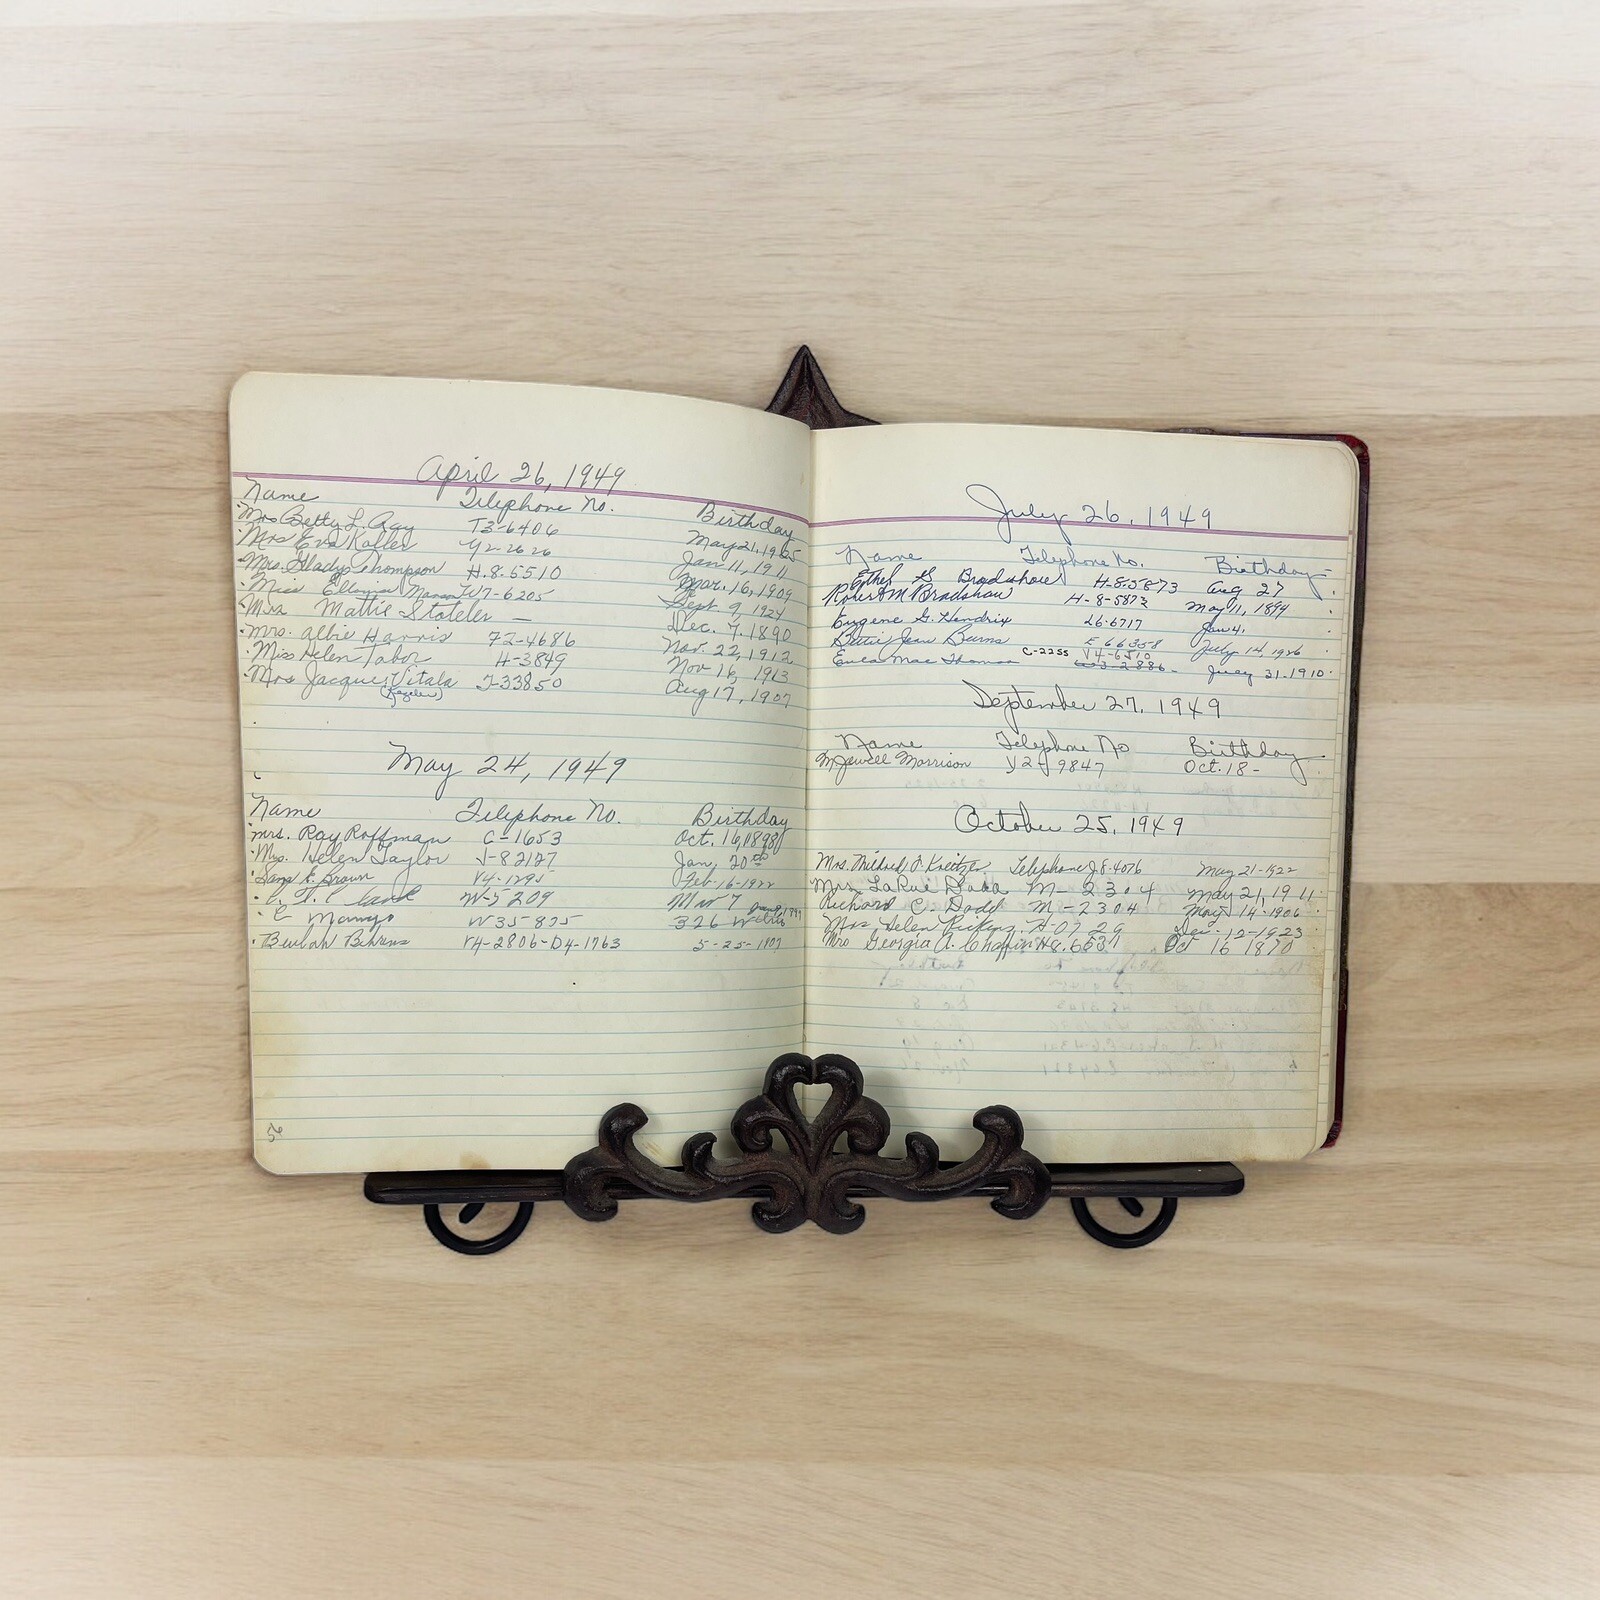 April 26, 1949
Name Telephone No. Birthday
Mrs Betty L. Ray T3-6406 May 21, 1925
Mrs Eva Koller Y2-2626 Jan 11, 1911
Mrs. Gladys Thompson H.8.5510 Mar. 16, 1909
Miss W7-6205 Sept. 9, 1924
Mrs Mattie Stateler — Dec. 7, 1890
Mrs. Albie Harris 72-4686 Nov. 22, 1912
Miss Helen Tabor H-3849 Nov 16, 1913
Mrs Jacques Vitala J-33850 Aug 17, 1907
May 24, 1949
Name Telephone No. Birthday
Mrs. Ray Roffman C-1653 Oct. 16, 1898
Mrs. Helen Taylor J-82127 Jan. 20th
E. Brown V4-1295 Feb-16-1922
W-5209 Mar 7
W35-835 326
Beulah Behrens V4-2806-D4-1763 5-25-1907
July 26, 1949
Name Telephone No. Birthday
Ethel G Bradshaw H-8.5873 Aug 27
Robert M Bradshaw H-8-5873 May 11, 1894
Eugene G. Hendrix L6-6717 Jan 4,
Jean Burns E 66358 July 14, 1926
C-2255 V4-6510
Eula Mae Thomas 2886 July 31-1910
September 27, 1949
Name Telephone No Birthday
M Jewell Morrison Y2-9847 Oct. 18-
October 25, 1949
Mrs. Mildred F. Kreitzer Telephone J8-4076 May 21-1922
Mrs LaRue Dodd M-2304 May 21, 1911
Richard C. Dodd M-2304 May 14-1906
Mrs. Helen Pickens A-0729 Dec-12-1923
Mrs Georgia A. Chaffin H8.6537 Oct 16 1870